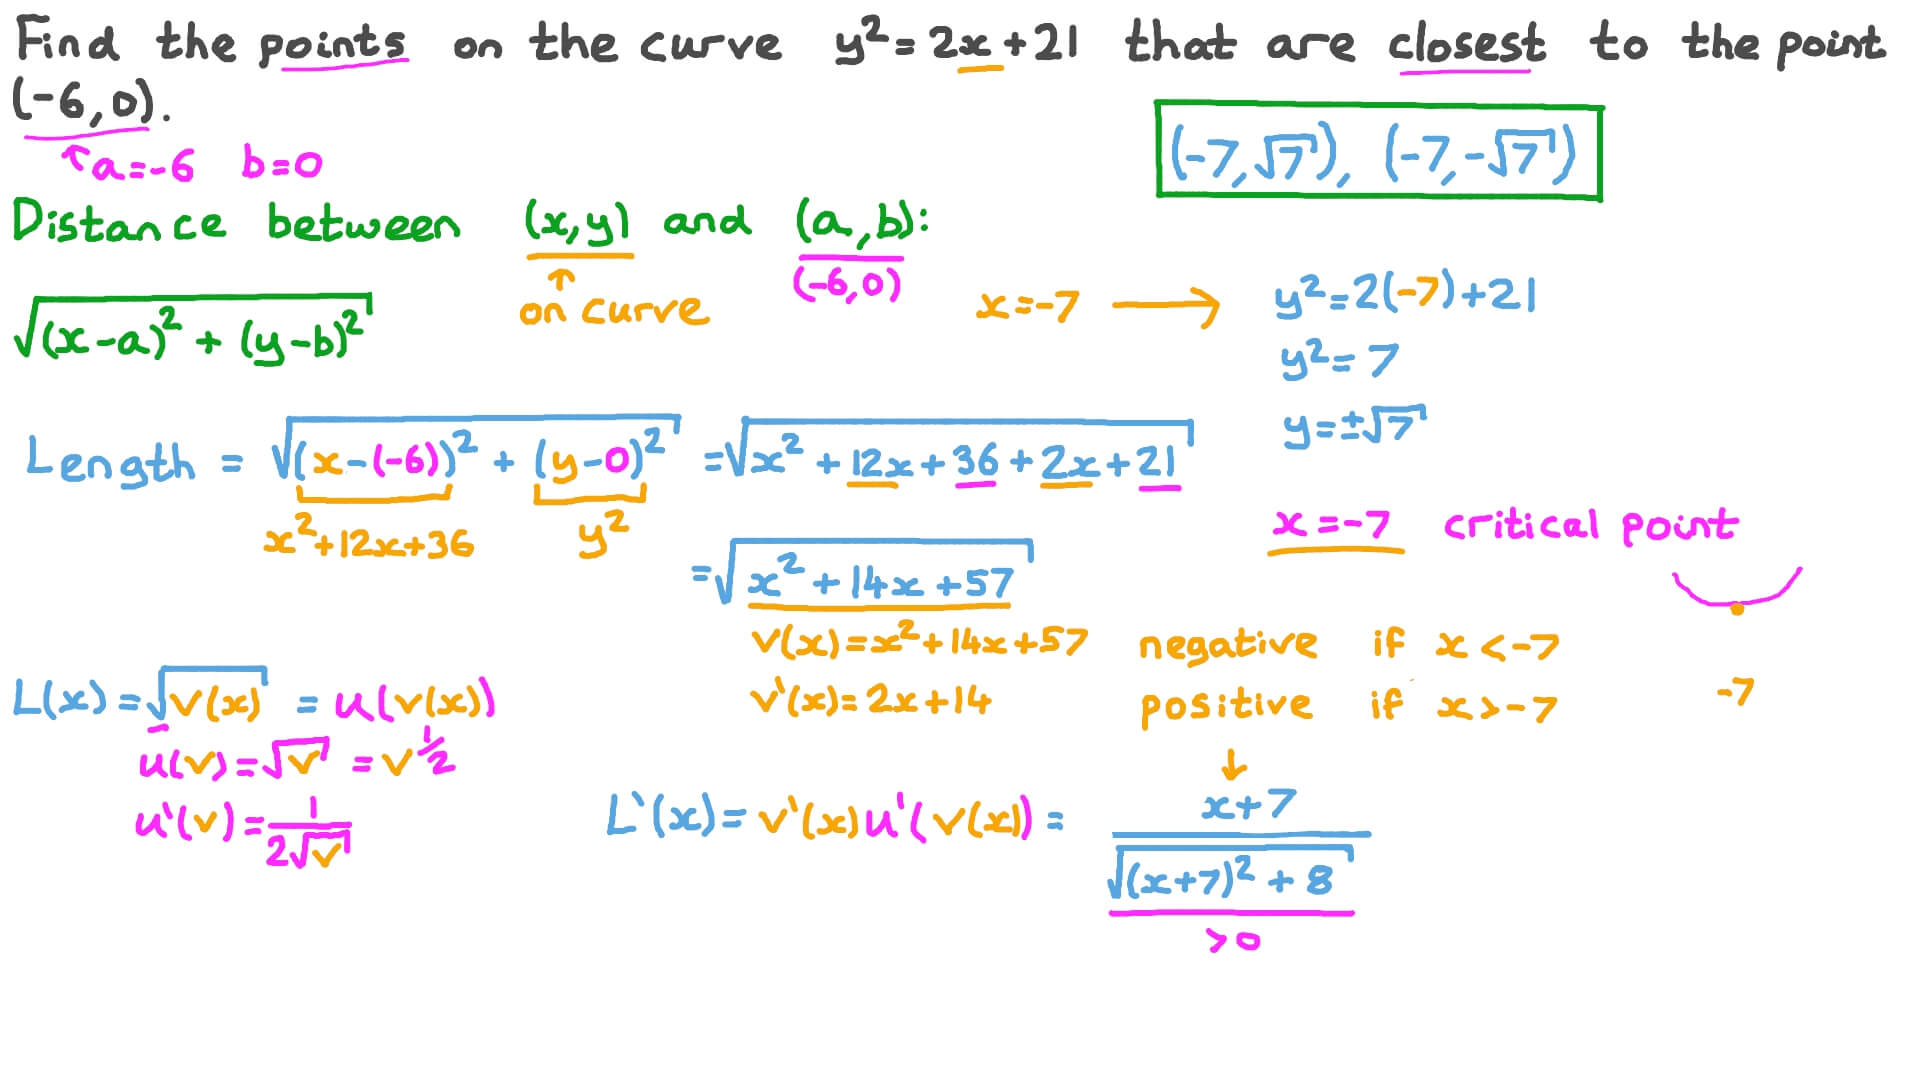 Find the points on the curve y²=2x+21 that are closest to the point
(-6,0).
(-7,√7), (-7,-√7)
↑a=-6 b=0
Distance between (x,y) and (a,b):
↑ (-6,0)
on curve
√((x-a)²+(y-b)²)
x=-7 → y²=2(-7)+21
y²=7
y=±√7
Length = √((x-(-6))²+(y-0)²) = √(x²+12x+36+2x+21)
x²+12x+36 y²
= √(x²+14x+57)
x=-7 critical point
v(x)=x²+14x+57 negative if x<-7
v'(x)=2x+14 positive if x>-7
-7
L(x)=√v(x) = u(v(x))
u(v)=√v = v^½
u'(v)=1/(2√v)
↓
L'(x)=v'(x)u'(v(x))= (x+7)/√((x+7)²+8)
>0